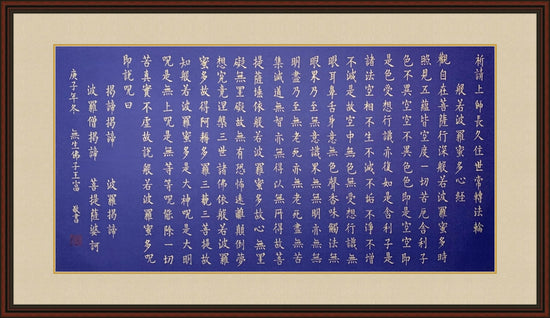 祈請上師長久住世常轉法輪
般若波羅蜜多心經
觀自在菩薩行深般若波羅蜜多時
照見五蘊皆空度一切苦厄舍利子
色不異空空不異色色即是空空即
是色受想行識亦復如是舍利子是
諸法空相不生不滅不垢不淨不增
不減是故空中無色無受想行識無
眼耳鼻舌身意無色聲香味觸法無
眼界乃至無意識界無無明亦無無
明盡乃至無老死亦無老死盡無苦
集滅道無智亦無得以無所得故菩
提薩埵依般若波羅蜜多故心無罣
礙無罣礙故無有恐怖遠離顛倒夢
想究竟涅槃三世諸佛依般若波羅
蜜多故得阿耨多羅三藐三菩提故
知般若波羅蜜多是大神呪是大明
呪是無上呪是無等等呪能除一切
苦真實不虛故說般若波羅蜜多呪
即說呪曰
揭諦揭諦 波羅揭諦
波羅僧揭諦 菩提薩婆訶
庚子年冬 無生佛子王富 敬書